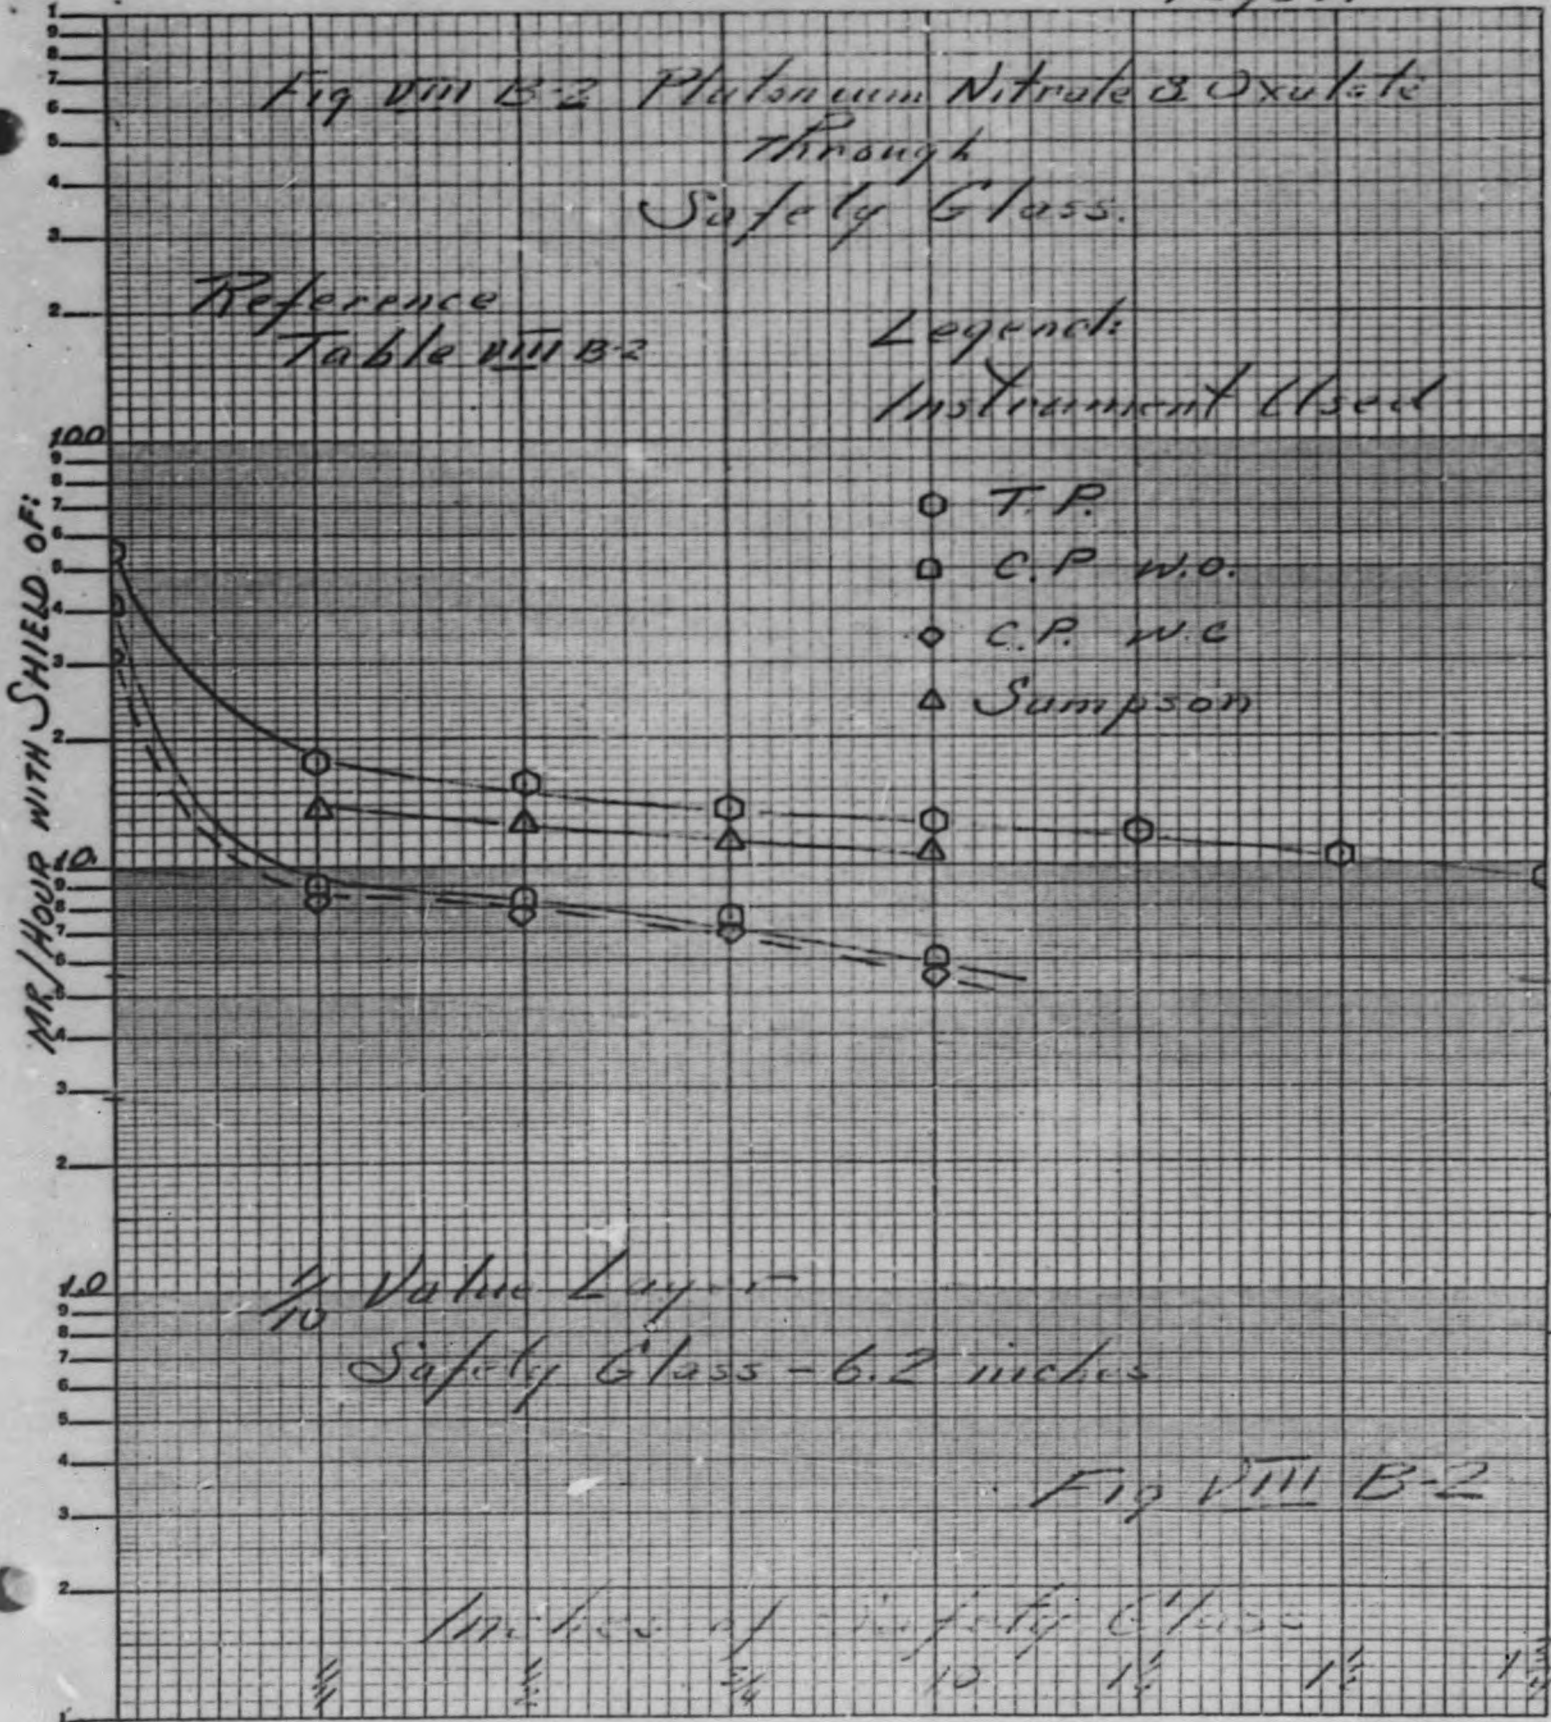 Fig VIII B-2 Plutonium Nitrate & Oxulate
Through
Safety Glass.
Reference
Table VIII B-2
Legend:
Instrument Used
T.P.
C.P. W.O.
C.P. W.C
Sumpson
MR/HOUR WITH SHIELD OF:
1
9
8
7
6
5
4
3
2
100
9
8
7
6
5
4
3
2
10.
9
8
7
6
5
4
3
2
1.0
9
8
7
6
5
4
3
2
1
1/10 Value Layer
Safety Glass - 6.2 inches
Fig VIII B-2
Inches of Safety Glass
1/4 1/2 3/4 1.0 1 1/4 1 1/2 1 3/4